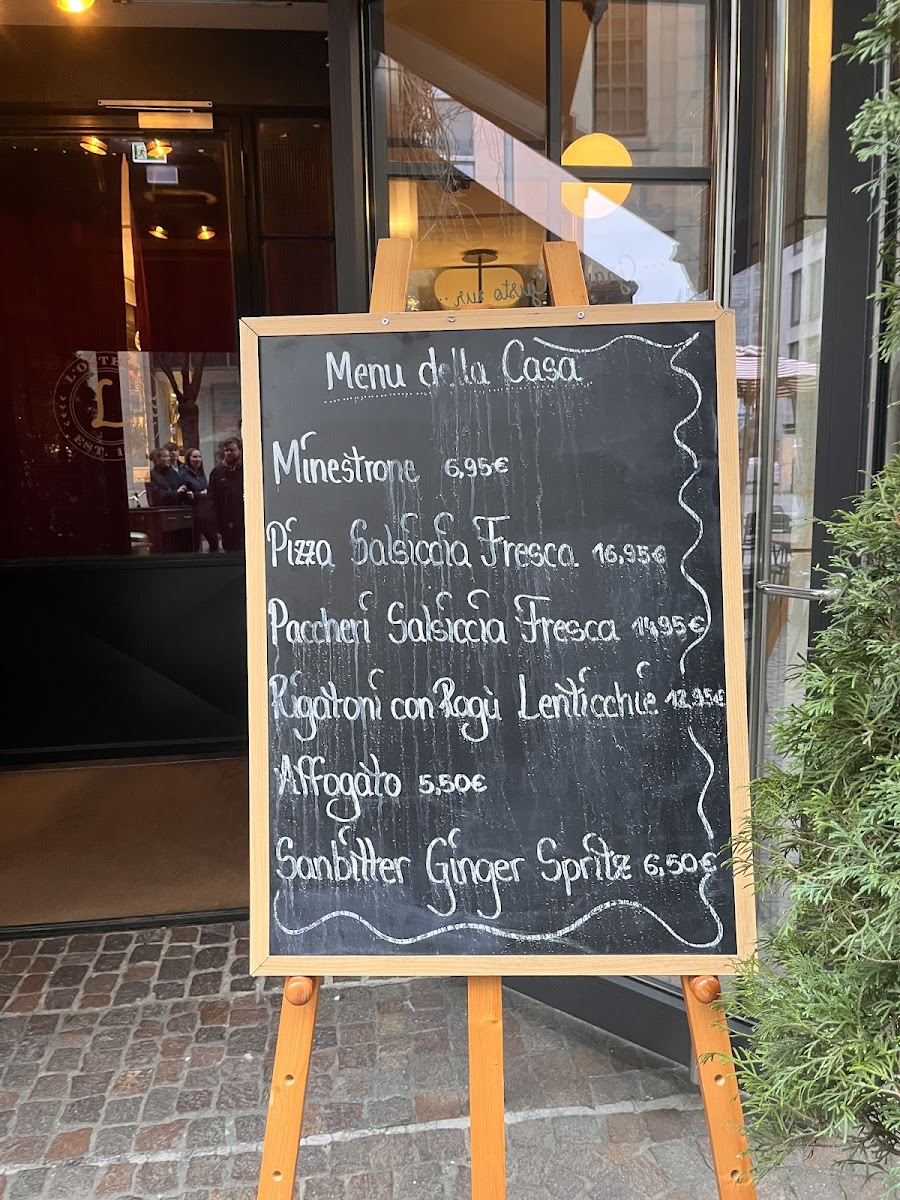 Menu della Casa
Minestrone 6,95€
Pizza Salsiccia Fresca 16,95€
Paccheri Salsiccia Fresca 14,95€
Rigatoni con Ragù Lenticchie 12,95€
Affogato 5,50€
Sanbitter Ginger Spritz 6,50€
L
EST.
Gusto